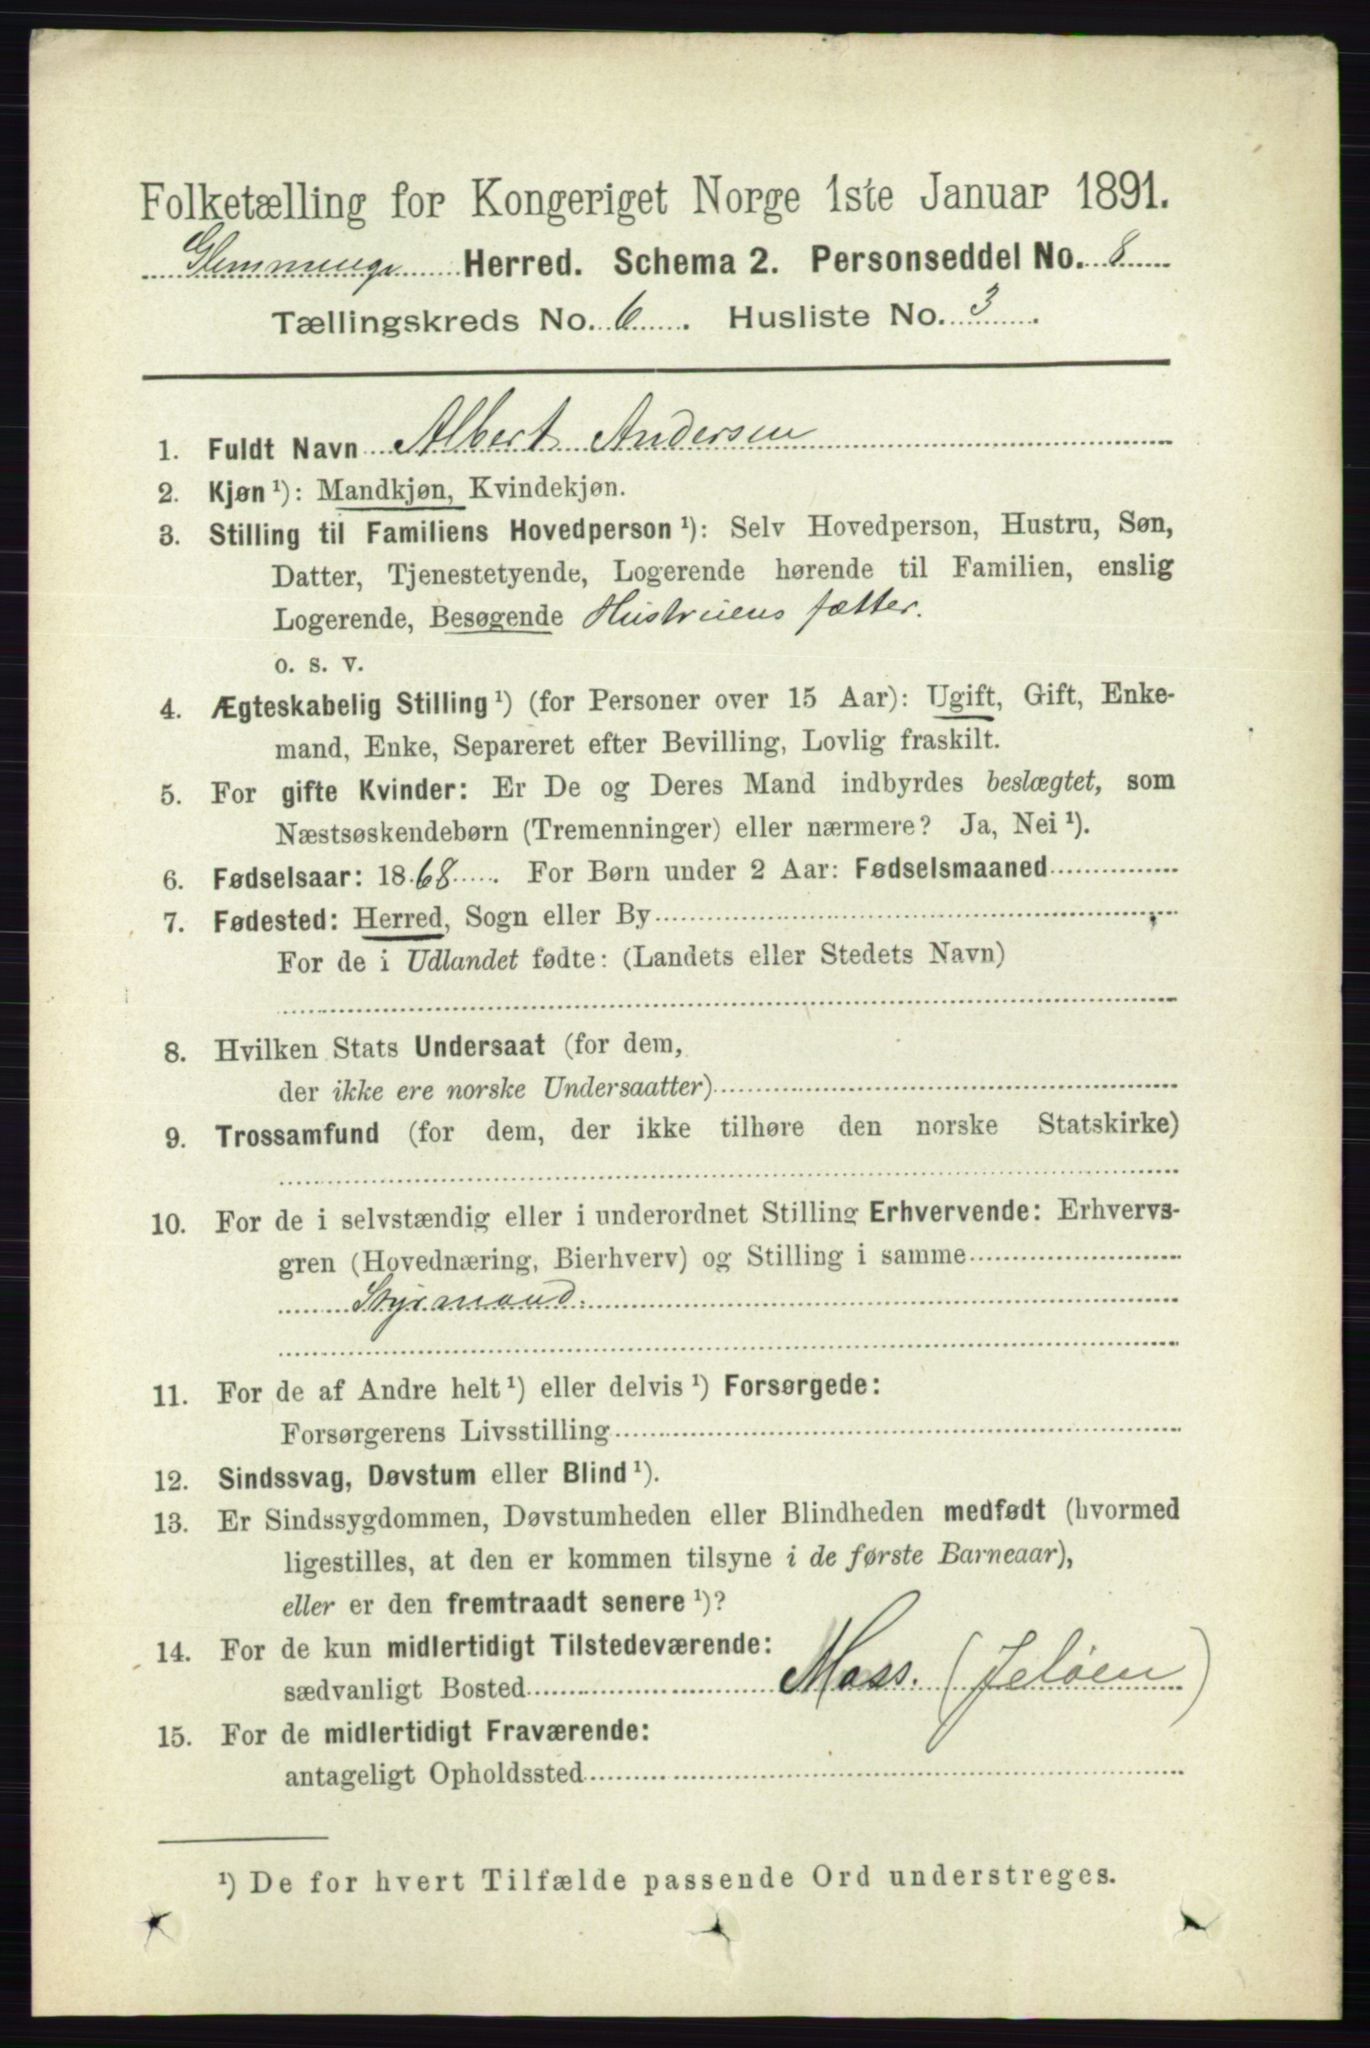 Folketælling for Kongeriget Norge 1ste Januar 1891.
Glemminge Herred. Schema 2. Personseddel No. 8
Tællingskreds No. 6. Husliste No. 3.
1. Fuldt Navn Albert Andersen
2. Kjøn ¹): Mandkjøn, Kvindekjøn.
3. Stilling til Familiens Hovedperson ¹): Selv Hovedperson, Hustru, Søn,
Datter, Tjenestetyende, Logerende hørende til Familien, enslig
Logerende, Besøgende Hustruens fætter.
o. s. v.
4. Ægteskabelig Stilling ¹) (for Personer over 15 Aar): Ugift, Gift, Enke-
mand, Enke, Separeret efter Bevilling, Lovlig fraskilt.
5. For gifte Kvinder: Er De og Deres Mand indbyrdes beslægtet, som
Næstsøskendebørn (Tremenninger) eller nærmere? Ja, Nei ¹).
6. Fødselsaar: 1868. For Børn under 2 Aar: Fødselsmaaned
7. Fødested: Herred, Sogn eller By
For de i Udlandet fødte: (Landets eller Stedets Navn)
8. Hvilken Stats Undersaat (for dem,
der ikke ere norske Undersaatter)
9. Trossamfund (for dem, der ikke tilhøre den norske Statskirke)
10. For de i selvstændig eller i underordnet Stilling Erhvervende: Erhvervs-
gren (Hovednæring, Bierhverv) og Stilling i samme
Styrmand.
11. For de af Andre helt ¹) eller delvis ¹) Forsørgede:
Forsørgerens Livsstilling
12. Sindssvag, Døvstum eller Blind ¹).
13. Er Sindssygdommen, Døvstumheden eller Blindheden medfødt (hvormed
ligestilles, at den er kommen tilsyne i de første Barneaar),
eller er den fremtraadt senere ¹)?
14. For de kun midlertidigt Tilstedeværende:
sædvanligt Bosted Moss. (Jeløen)
15. For de midlertidigt Fraværende:
antageligt Opholdssted
¹) De for hvert Tilfælde passende Ord understreges.